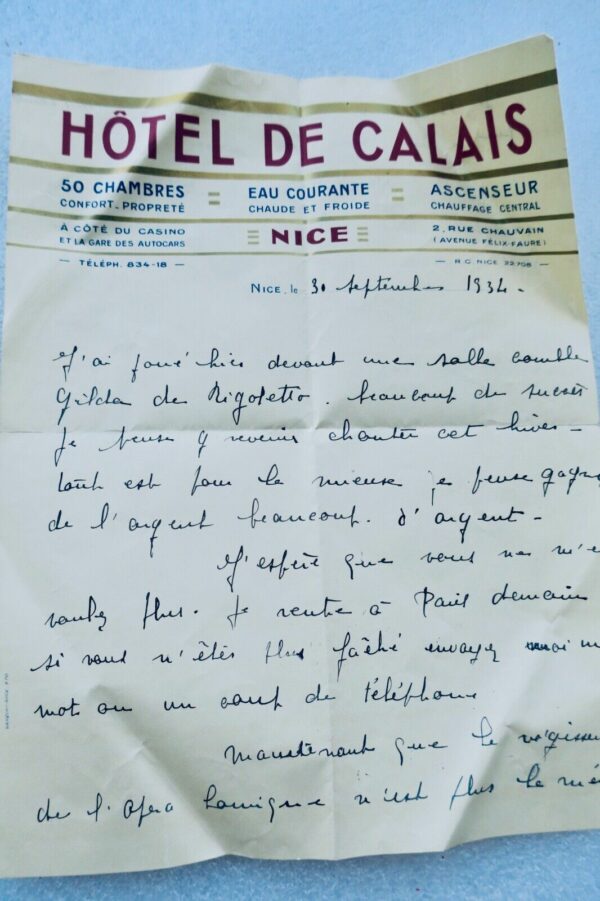 HÔTEL DE CALAIS
50 CHAMBRES
CONFORT - PROPRETÉ
EAU COURANTE
CHAUDE ET FROIDE
ASCENSEUR
CHAUFFAGE CENTRAL
À CÔTÉ DU CASINO
ET LA GARE DES AUTOCARS
NICE
2, RUE CHAUVAIN
(AVENUE FÉLIX-FAURE)
— TÉLÉPH. 834-18 —
— R.C. NICE 22.708 —
NICE, le 30 septembre 1934 -
J'ai joué hier devant une salle comble
Gilda de Rigoletto. beaucoup de succès
Je pense y revenir chanter cet hiver -
tout est pour le mieux je pense
de l'argent beaucoup. d'argent -
J'espère que vous ne m'e
voulez plus. Je rentre à Paris demain
si vous n'êtes plus fâché envoyez moi
mot ou un coup de téléphone
Maintenant que le
de l'Opéra Comique n'est plus le